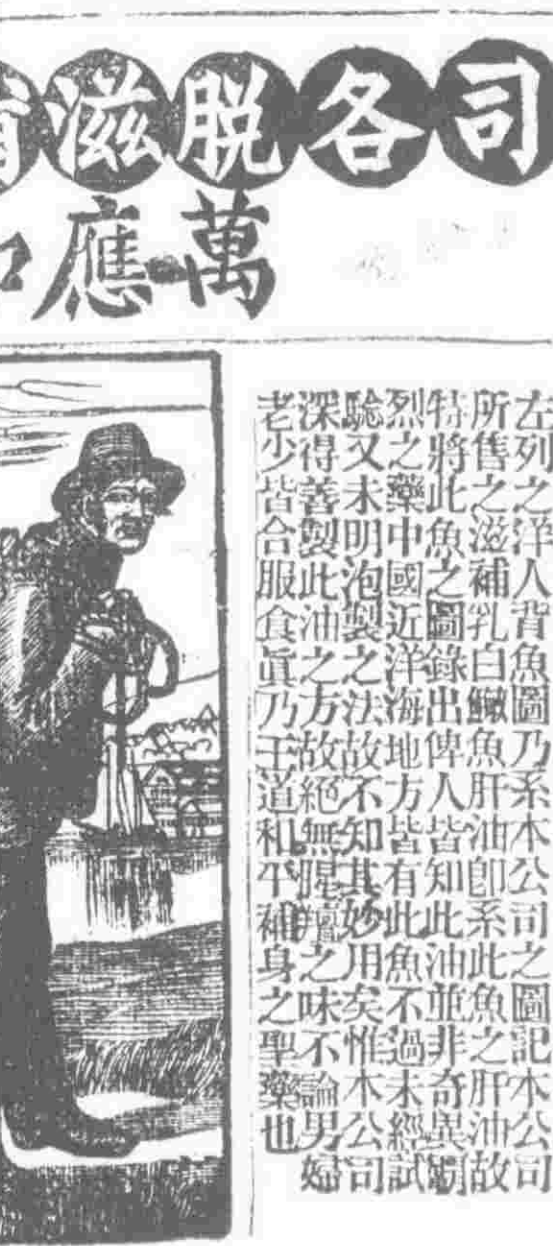 司各脱滋補
萬應
左列之洋人背魚圖乃系本公司之圖記本公司
所售之滋補乳白鰵魚肝油卽系此魚之肝油故
特將此魚之圖錄出俾人皆知此油並非奇異剛
烈之藥中國近洋海地方皆有此魚不過未經試
騐又未明泡製之法故不知其妙用矣惟本公司
深得善製此油之方故絕無腥羶之味不論男婦
老少皆合服食眞乃王道和平補身之聖藥也